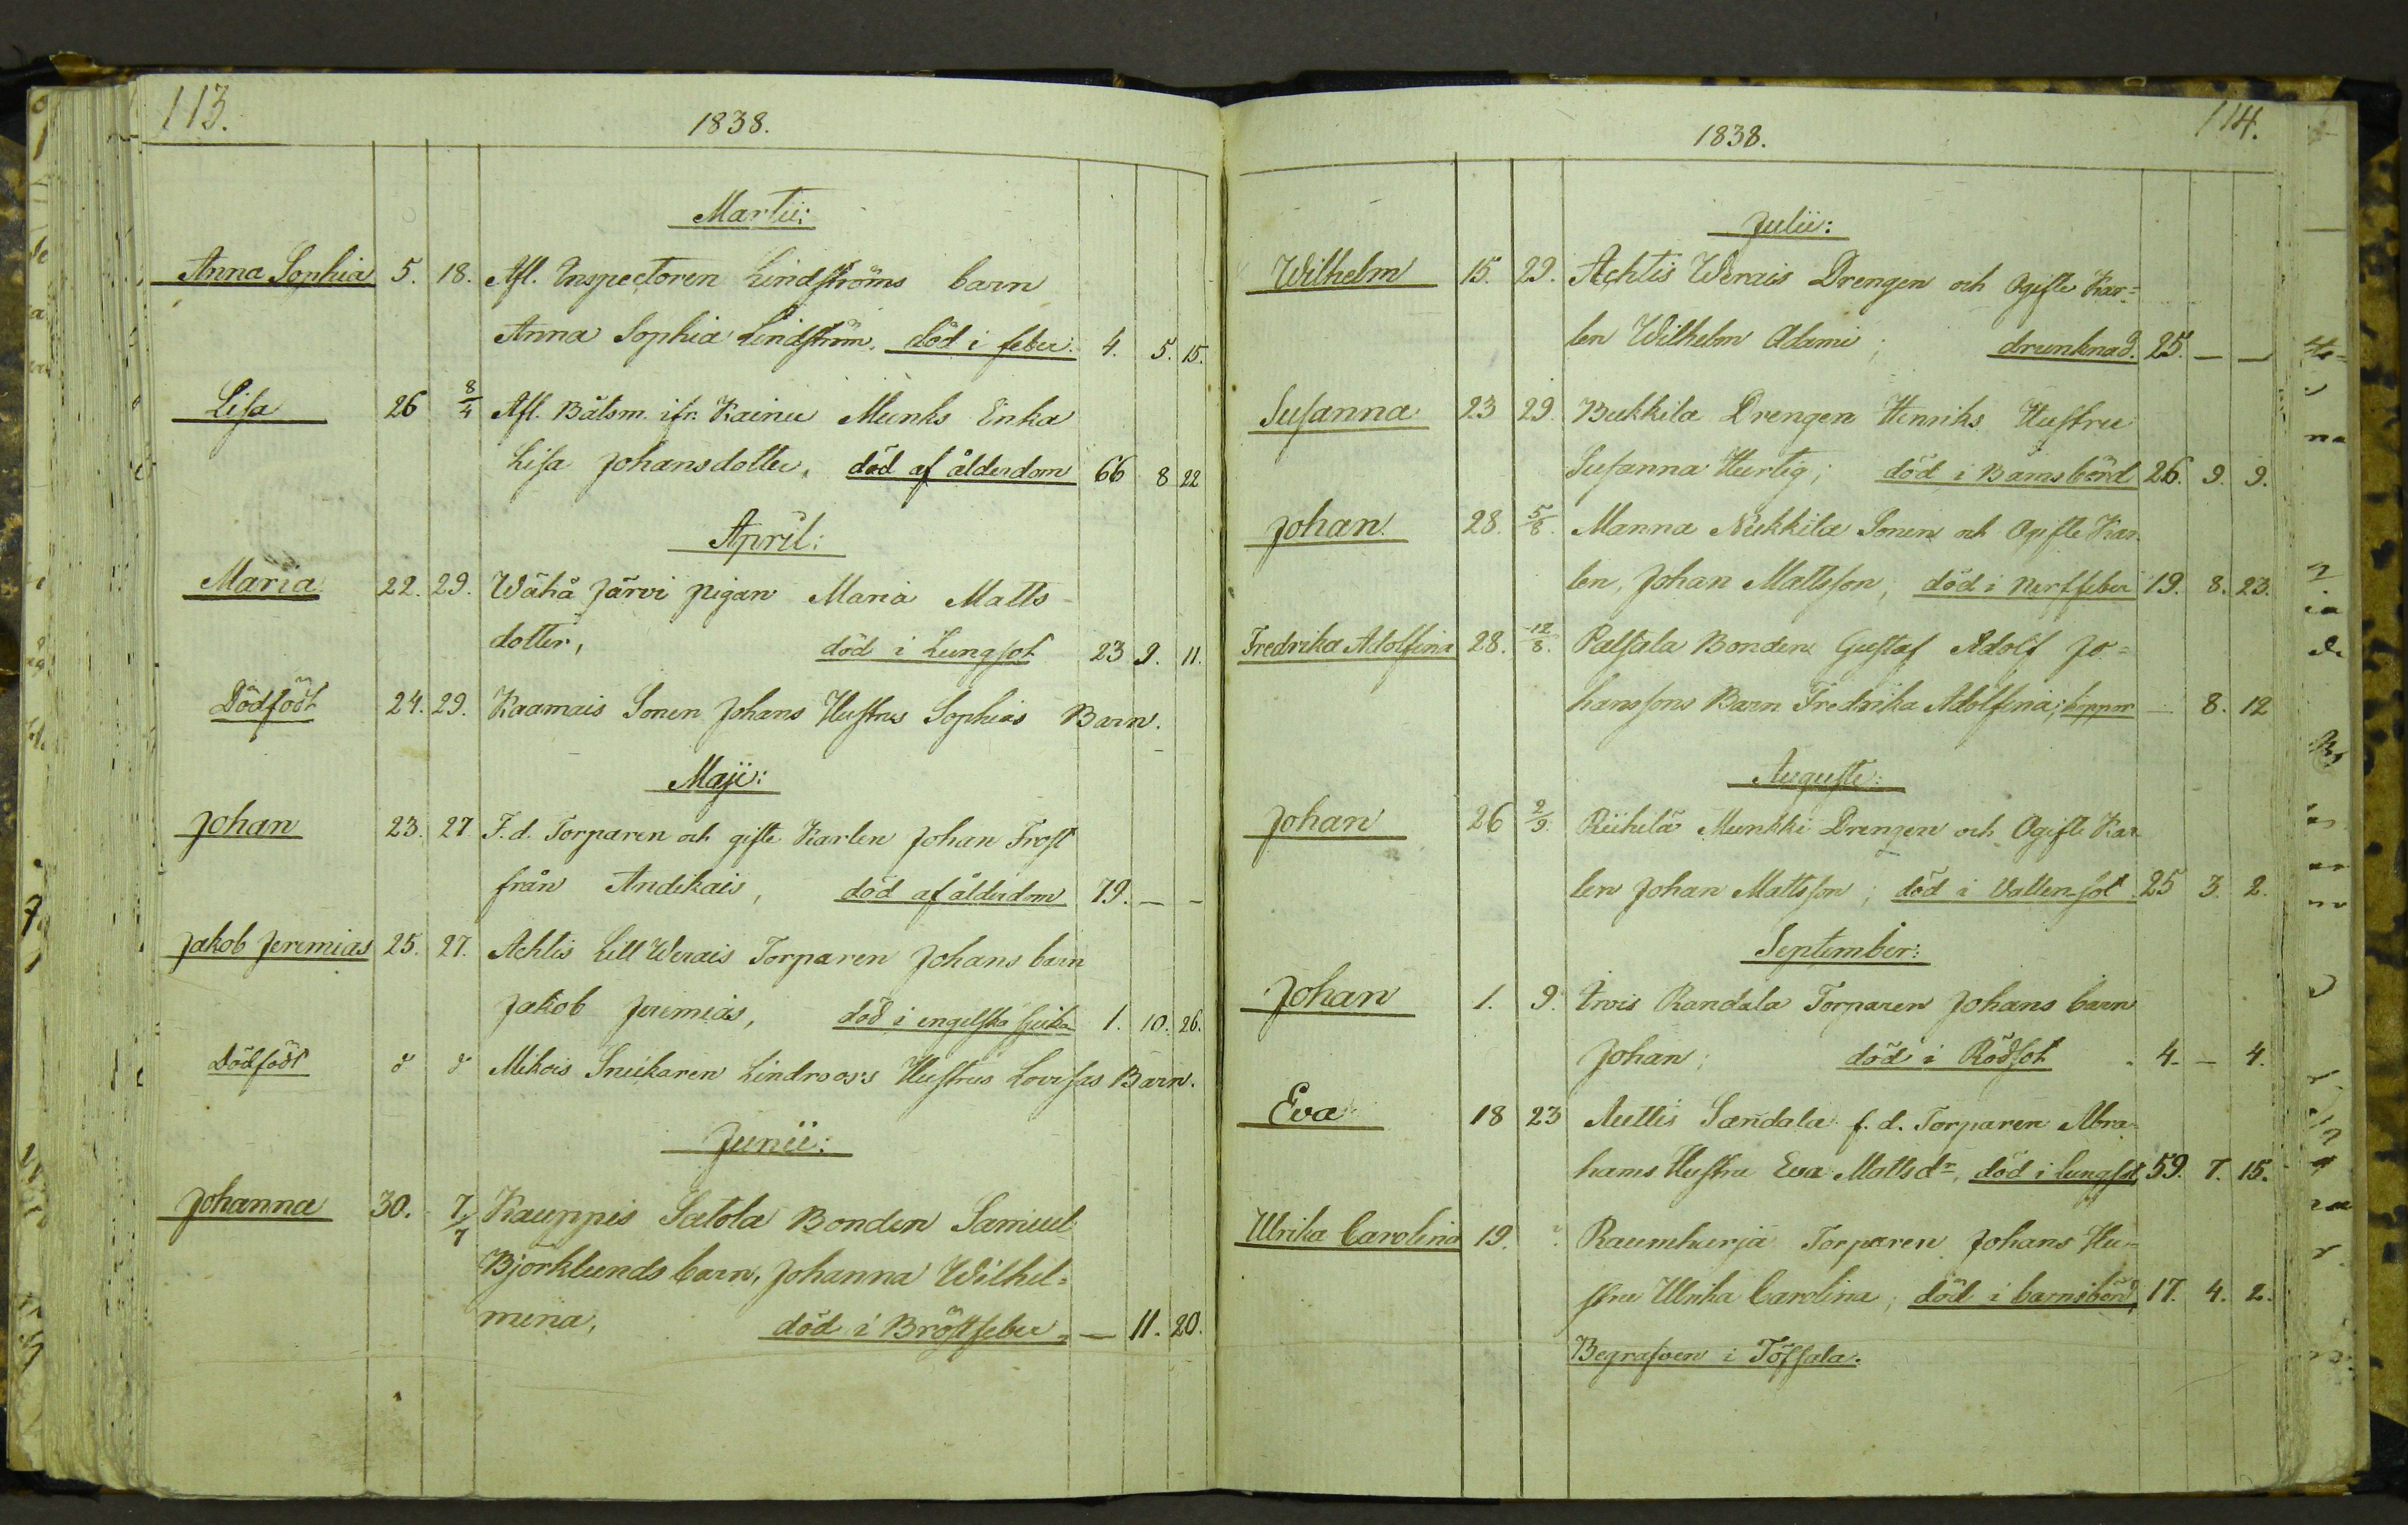 113.
1838.
Martii:
Anna Sophia 5. 18. Afl. Inspectoren Lindströms barn
Anna Sophia Lindström. död i feber. 4. 5. 15.
Lisa 26 8/4 Afl. Båtsm. ifr. Kainu Munks Enka
Lisa Johansdotter, död af ålderdom 66 8 22
April:
Maria 22. 29. Wähä Järvi pigan Maria Matts
dotter, död i Lungsot 23 9. 11.
Dödfödt 24. 29. Kaamais Sonen Johans Hustrus Sophias Barn.
Maji:
Johan 23. 27 F.d. Torparen och gifte Karlen Johan Frost
från Andikais, död af ålderdom 79. — —
Jakob Jeremias 25. 27. Achtis Lill Werais Torparen Johans barn
Jakob Jeremias, död i engelska sjuka 1. 10. 26.
Dödfödt d d Mikois Snickaren Lindrooss Hustrus Lovisas Barn.
Junii:
Johanna 30. 7/7 Kauppis Satola Bonden Samuel
Björklunds barn, Johanna Wilhel=
mina, död i Bröstfeber — 11. 20.
1838.
114.
Julii:
Wilhelm 15. 29. Achtis Werais Drengen och Ogifte Kar=
len Wilhelm Adami; drunknad. 25. — —
Susanna 23 29. Bukkila Drengen Henriks Hustru
Susanna Hurtig; död i Barnsbörd 26. 9. 9.
Johan. 28. 5/8. Manna Nukkila Sonen och Ogifte Kar
len, Johan Mattsson, död i Nerffeber 19. 8. 23.
Fredrika Adolfina 28. 12/8. Palsala Bonden Gustaf Adolf Jo=
hanssons Barn Fredrika Adolfina; koppor — 8. 12
Augusti:
Johan 26 2/9. Riihilä Munkki Drengen och Ogifte Kar
len Johan Mattsson; död i Vattensot 25 3. 2.
September:
Johan 1. 9. Irois Randala Torparen Johans barn
Johan; död i Rödsot 4 — 4.
Eva 18 23 Auttis Sandala f.d. Torparen Abra
hams Hustru Eva Mattsdr, död i lungsot 59. 7. 15.
Ulrika Carolina 19. Raumhurja Torparen Johans Hu=
stru Ulrika Carolina; död i barnsbörd, 17. 4. 2.
Begrafven i Töfsala.